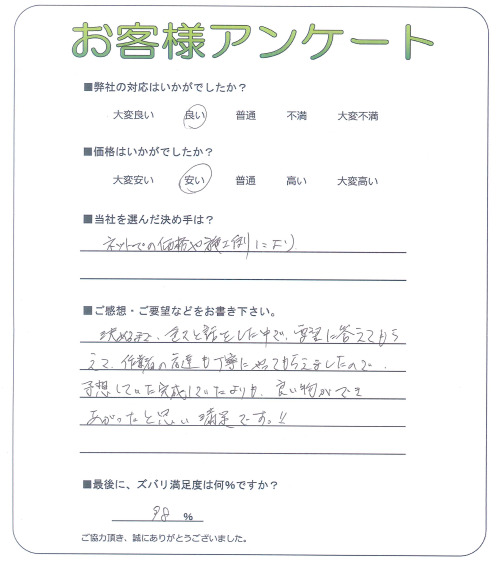 お客様アンケート
■弊社の対応はいかがでしたか？
大変良い 良い 普通 不満 大変不満
■価格はいかがでしたか？
大変安い 安い 普通 高い 大変高い
■当社を選んだ決め手は？
ネットでの価格や施工例により
■ご感想・ご要望などをお書き下さい。
決めるまで、色々と話をした中で、要望に答えてもら
えて、作業者の方達も丁寧にやってもらえましたので、
予想していた完成していたよりも、良い物ができ
あがったと思い満足です。!!
■最後に、ズバリ満足度は何％ですか？
98 ％
ご協力頂き、誠にありがとうございました。